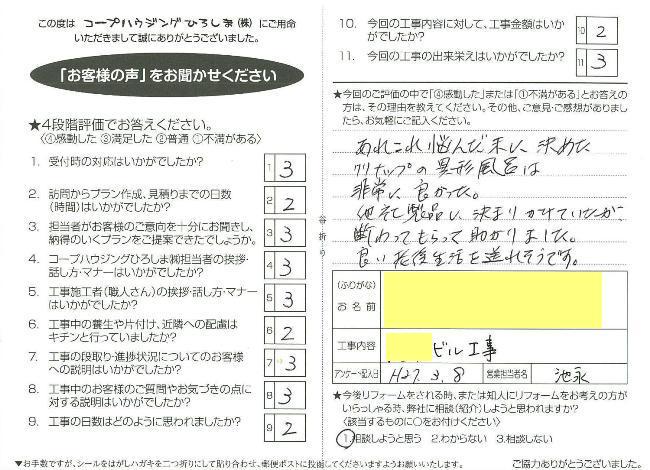 この度は コープハウジングひろしま(株) にご用命
いただきまして誠にありがとうございました。
「お客様の声」をお聞かせください
★4段階評価でお答えください。
〈④感動した ③満足した ②普通 ①不満がある〉
1. 受付時の対応はいかがでしたか? 1 3
2. 訪問からプラン作成、見積りまでの日数
(時間)はいかがでしたか? 2 2
3. 担当者がお客様のご意向を十分にお聞きし、
納得のいくプランをご提案できたでしょうか。 3 3
4. コープハウジングひろしま㈱担当者の挨拶・
話し方・マナーはいかがでしたか? 4 3
5. 工事施工者(職人さん)の挨拶・話し方・マナー
はいかがでしたか? 5 3
6. 工事中の養生や片付け、近隣への配慮は
キチンと行っていましたか? 6 2
7. 工事の段取り・進捗状況についてのお客様
への説明はいかがでしたか? 7 3
8. 工事中のお客様のご質問やお気づきの点に
対する説明はいかがでしたか? 8 3
9. 工事の日数はどのように思われましたか? 9 2
谷折り
10. 今回の工事内容に対して、工事金額はいか
がでしたか? 10 2
11. 今回の工事の出来栄えはいかがでしたか? 11 3
★今回のご評価の中で「④感動した」または「①不満がある」とお答えの
方は、その理由を教えてください。その他、ご意見・ご感想がありました
ら、お気軽にご記入ください。
あれこれ悩んだ末に決めた
クリナップの異形風呂は
非常に良かった。
他社製品に決まりかけていたが、
断わってもらって助かりました。
良い老後生活を送れそうです。
(ふりがな)
お名前
工事内容 ビル工事
アンケート記入日 H27.3.8 営業担当者名 池永
★今後リフォームをされる時、または知人にリフォームをお考えの方が
いらっしゃる時、弊社に相談(紹介)しようと思われますか?
〈該当するものに○をお付けください〉
1.相談しようと思う 2.わからない 3.相談しない
▼お手数ですが、シールをはがしハガキを二つ折りにして貼り合わせ、郵便ポストに投函してくださいますようお願いいたします。 ご協力ありがとうございました。